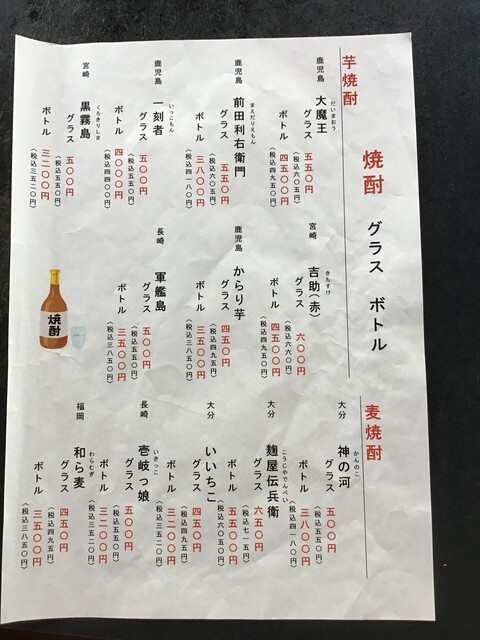 焼酎 グラス ボトル
芋焼酎
鹿児島
大魔王
だいまおう
グラス 五五〇円
(税込六〇五円)
ボトル 四五〇〇円
(税込四九五〇円)
鹿児島
前田利右衛門
まえだりえもん
グラス 五五〇円
(税込六〇五円)
ボトル 三八〇〇円
(税込四一八〇円)
鹿児島
一刻者
いっこもん
グラス 五〇〇円
(税込五五〇円)
ボトル 四〇〇〇円
(税込四四〇〇円)
宮崎
黒霧島
くろきりしま
グラス 五〇〇円
(税込五五〇円)
ボトル 三二〇〇円
(税込三五二〇円)
宮崎
吉助(赤)
きちすけ
グラス 六〇〇円
(税込六六〇円)
ボトル 四五〇〇円
(税込四九五〇円)
鹿児島
からり芋
グラス 四五〇円
(税込四九五円)
ボトル 三五〇〇円
(税込三八五〇円)
長崎
軍艦島
グラス 五〇〇円
(税込五五〇円)
ボトル 三五〇〇円
(税込三八五〇円)
焼酎
麦焼酎
大分
神の河
かんのこ
グラス 五〇〇円
(税込五五〇円)
ボトル 三八〇〇円
(税込四一八〇円)
大分
麹屋伝兵衛
こうじやでんべい
グラス 六五〇円
(税込七一五円)
ボトル 五五〇〇円
(税込六〇五〇円)
大分
いいちこ
グラス 四五〇円
(税込四九五円)
ボトル 三二〇〇円
(税込三五二〇円)
長崎
壱岐っ娘
いきっこ
グラス 五〇〇円
(税込五五〇円)
ボトル 三二〇〇円
(税込三五二〇円)
福岡
和ら麦
わらむぎ
グラス 四五〇円
(税込四九五円)
ボトル 三五〇〇円
(税込三八五〇円)